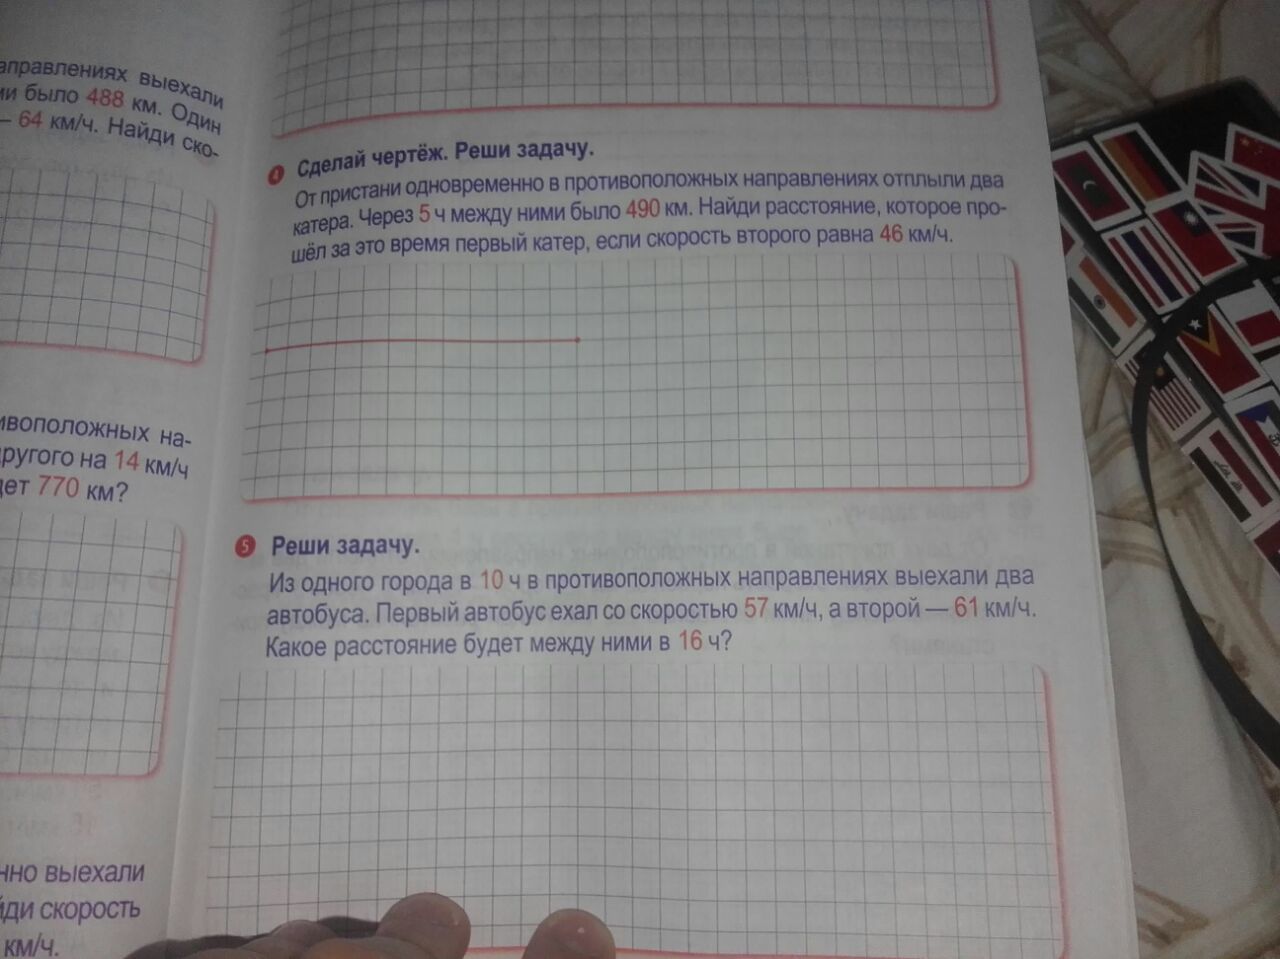 аправлениях выехали
ми было 488 км. Один
— 64 км/ч. Найди ско-
ивоположных на-
другого на 14 км/ч
дет 770 км?
нно выехали
йди скорость
км/ч.
4 Сделай чертёж. Реши задачу.
От пристани одновременно в противоположных направлениях отплыли два
катера. Через 5 ч между ними было 490 км. Найди расстояние, которое про-
шёл за это время первый катер, если скорость второго равна 46 км/ч.
5 Реши задачу.
Из одного города в 10 ч в противоположных направлениях выехали два
автобуса. Первый автобус ехал со скоростью 57 км/ч, а второй — 61 км/ч.
Какое расстояние будет между ними в 16 ч?